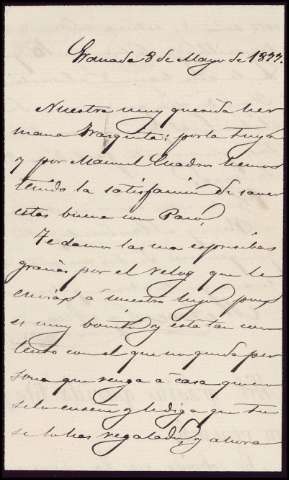 Granada 8 de Mayo de 1877.
Nuestra muy querida her
mana Margarita: por la tuya
y por Manuel Cuadros hemos
tenido la satisfacion de saver
estas buena con Paco,
Te damos las mas espresibas
gracias por el relog que le
enviaş á nuestro hijo pues
es muy bonito y esta tan con
tento con el que no queda per
sona que venga á casa quien
se lo enseñe y le diga que tu
se lo has regalado, y ahora